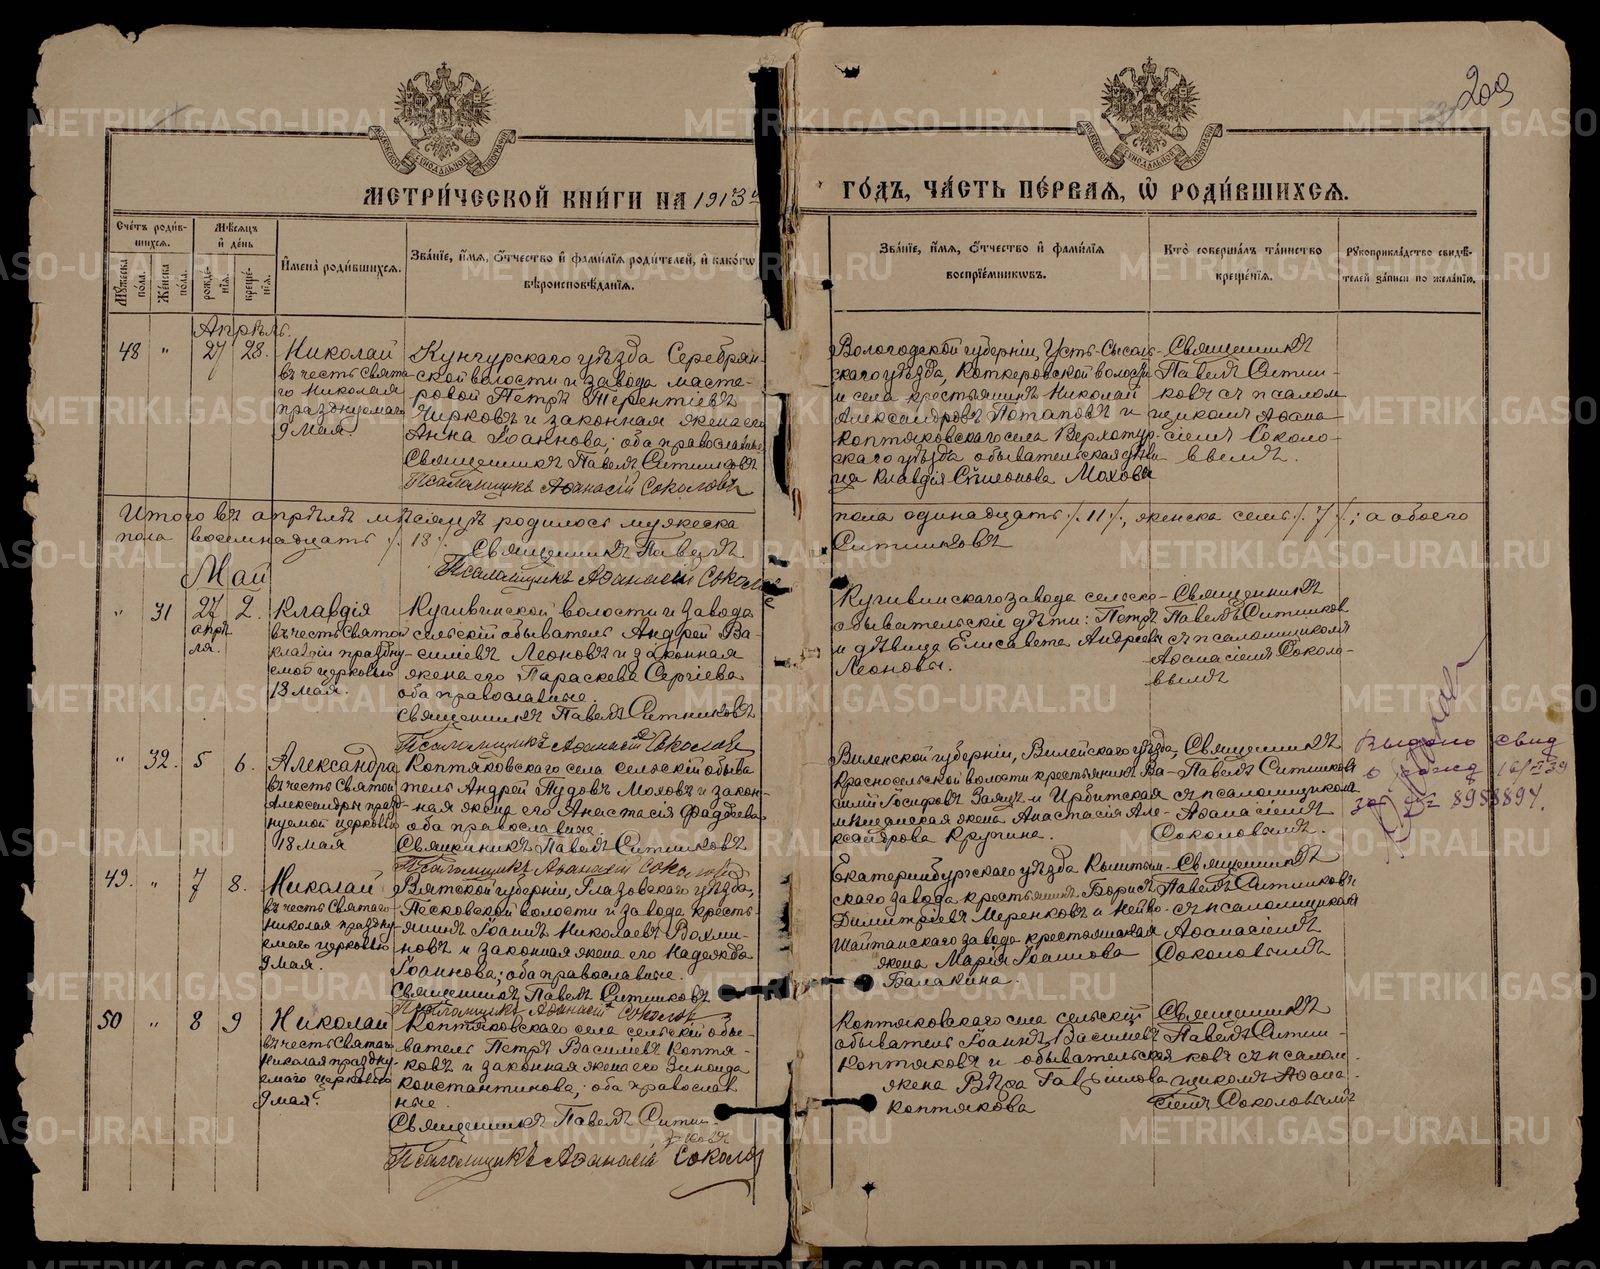 209
МЕТРИЧЕСКОЙ КНИГИ НА 1913 й
ГОДЪ, ЧАСТЬ ПЕРВАЯ, Ѿ РОДИВШИХСЯ.
Счетъ родившихся.
Мужеска пола.
Женска пола.
Мѣсяцъ и день
рожденія.
крещенія.
Имена родившихся.
Званіе, имя, отчество и фамилія родителей, и какогѡ
вѣроисповѣданія.
Званіе, имя, отчество и фамилія
воспріемниковъ.
Кто совершалъ таинство
крещенія.
Рукоприкладство свидѣ-
телей записи по желанію.
Апрѣль.
48 " 27 28.
Николай
въ честь Свята-
го Николая
празднуемаго
9 Мая.
Кунгурскаго уѣзда Серебрян-
ской волости и завода масте-
ровой Петръ Терентіевъ
Чирковъ и законная жена его
Анна Іоаннова; оба православные
Священникъ Павелъ Ситниковъ
Псаломщикъ Аѳанасій Соколовъ
Вологодской губерніи, Усть-Сысоль-
скаго уѣзда, Коткеровской волости
и села крестьянинъ Николай
Александровъ Потаповъ и
Коптяковскаго села Верхотур-
скаго уѣзда обывательская дѣви-
ца Клавдія Спиридонова Махова
Священникъ
Павелъ Ситни-
ковъ съ псалом
щикомъ Аѳана-
сіемъ Соколо-
вымъ.
Итого въ апрѣлѣ мѣсяцѣ родилось мужеска
пола одинадцать /. 11 /., женска семь /. 7 /.; а обоего
пола восемнадцать /. 18 /.
Священникъ Павелъ
Ситниковъ
Псаломщикъ Аѳанасій Соколовъ
Май
" 31 27 апрѣля. 2.
Клавдія
въ честь Святой
Клавдіи праздну-
емой церковью
18 мая.
Кушвинской волости и завода
сельскій обыватель Андрей Ва-
силіевъ Леоновъ и законная
жена его Параскева Сергіева
оба православные.
Священникъ Павелъ Ситниковъ
Псаломщикъ Аѳанасій Соколовъ
Кушвинскаго завода сельско-
обывательскіе дѣти: Петръ
и дѣвица Елисавета Андреевы
Леоновы.
Священникъ
Павелъ Ситников
съ псаломщикомъ
Аѳанасіемъ Соколо-
вымъ
" 32. 5 6.
Александра
въ честь Святой
Александры празд-
нуемой церковью
18 мая
Коптяковскаго села сельскій обыва
тель Андрей Пудовъ Моховъ и закон-
ная жена его Анастасія Фадѣева
оба православные.
Священникъ Павелъ Ситниковъ
Псаломщикъ Аѳанасій Соколовъ
Виленской губерніи, Вилейскаго уѣзда,
Красносельской волости крестьянинъ Ва-
силій Іосифовъ Заяцъ и Ирбитская
мѣщанская жена Анастасія Але-
ксандрова Крупина.
Священникъ
Павелъ Ситниковъ
съ псаломщикомъ
Аѳанасіемъ
Соколовымъ.
Выдано свид
о рожд
8958894.
49. " 7 8.
Николай
въ честь Святаго
Николая праздну-
емаго церковью
9 мая.
Вятской губерніи, Глазовскаго уѣзда,
Песковской волости и завода кресть-
янинъ Іоаннъ Николаевъ Вохми-
новъ и законная жена его Надежда
Іоаннова; оба православные.
Священникъ Павелъ Ситниковъ
Псаломщикъ Аѳанасій Соколовъ
Екатеринбургскаго уѣзда Кыштым-
скаго завода крестьянинъ Борисъ
Димитріевъ Меренковъ и Нейво-
Шайтанскаго завода крестьянская
жена Марія Іоаннова
Балакина.
Священникъ
Павелъ Ситниковъ
съ псаломщикомъ
Аѳанасіемъ
Соколовымъ
50 " 8 9
Николай
въ честь Святаго
Николая праздну-
емаго церковью
9 мая.
Коптяковскаго села сельскій обы-
ватель Петръ Василіевъ Коптя-
ковъ и законная жена его Зинаида
Константинова; оба православ
ные.
Священникъ Павелъ Ситни-
ковъ
Псаломщикъ Аѳанасій Соколовъ
Коптяковскаго села сельскій
обыватель Іоаннъ Василіевъ
Коптяковъ и обывательская
жена Вѣра Гавріилова
Коптякова
Священникъ
Павелъ Ситни-
ковъ съ псалом-
щикомъ Аѳана-
сіемъ Соколовымъ
METRIKI.GASO-URAL.RU